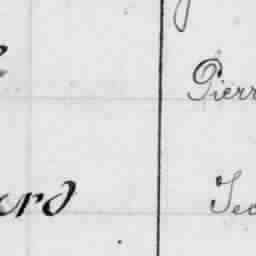 Pierr
ard Jea